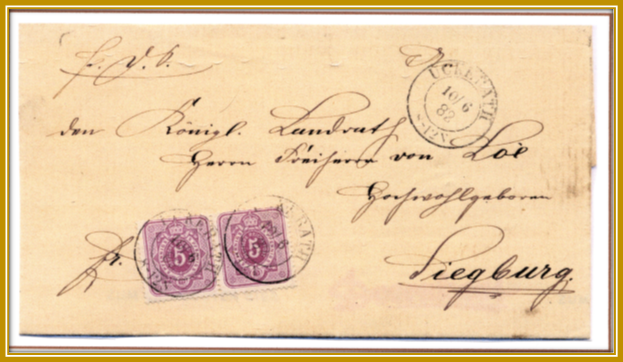 UCKERATH
10/6
82
den Königl. Landrath
Herrn Freiherrn von Loë
Hochwohlgeboren
fr.
Siegburg.
5
5